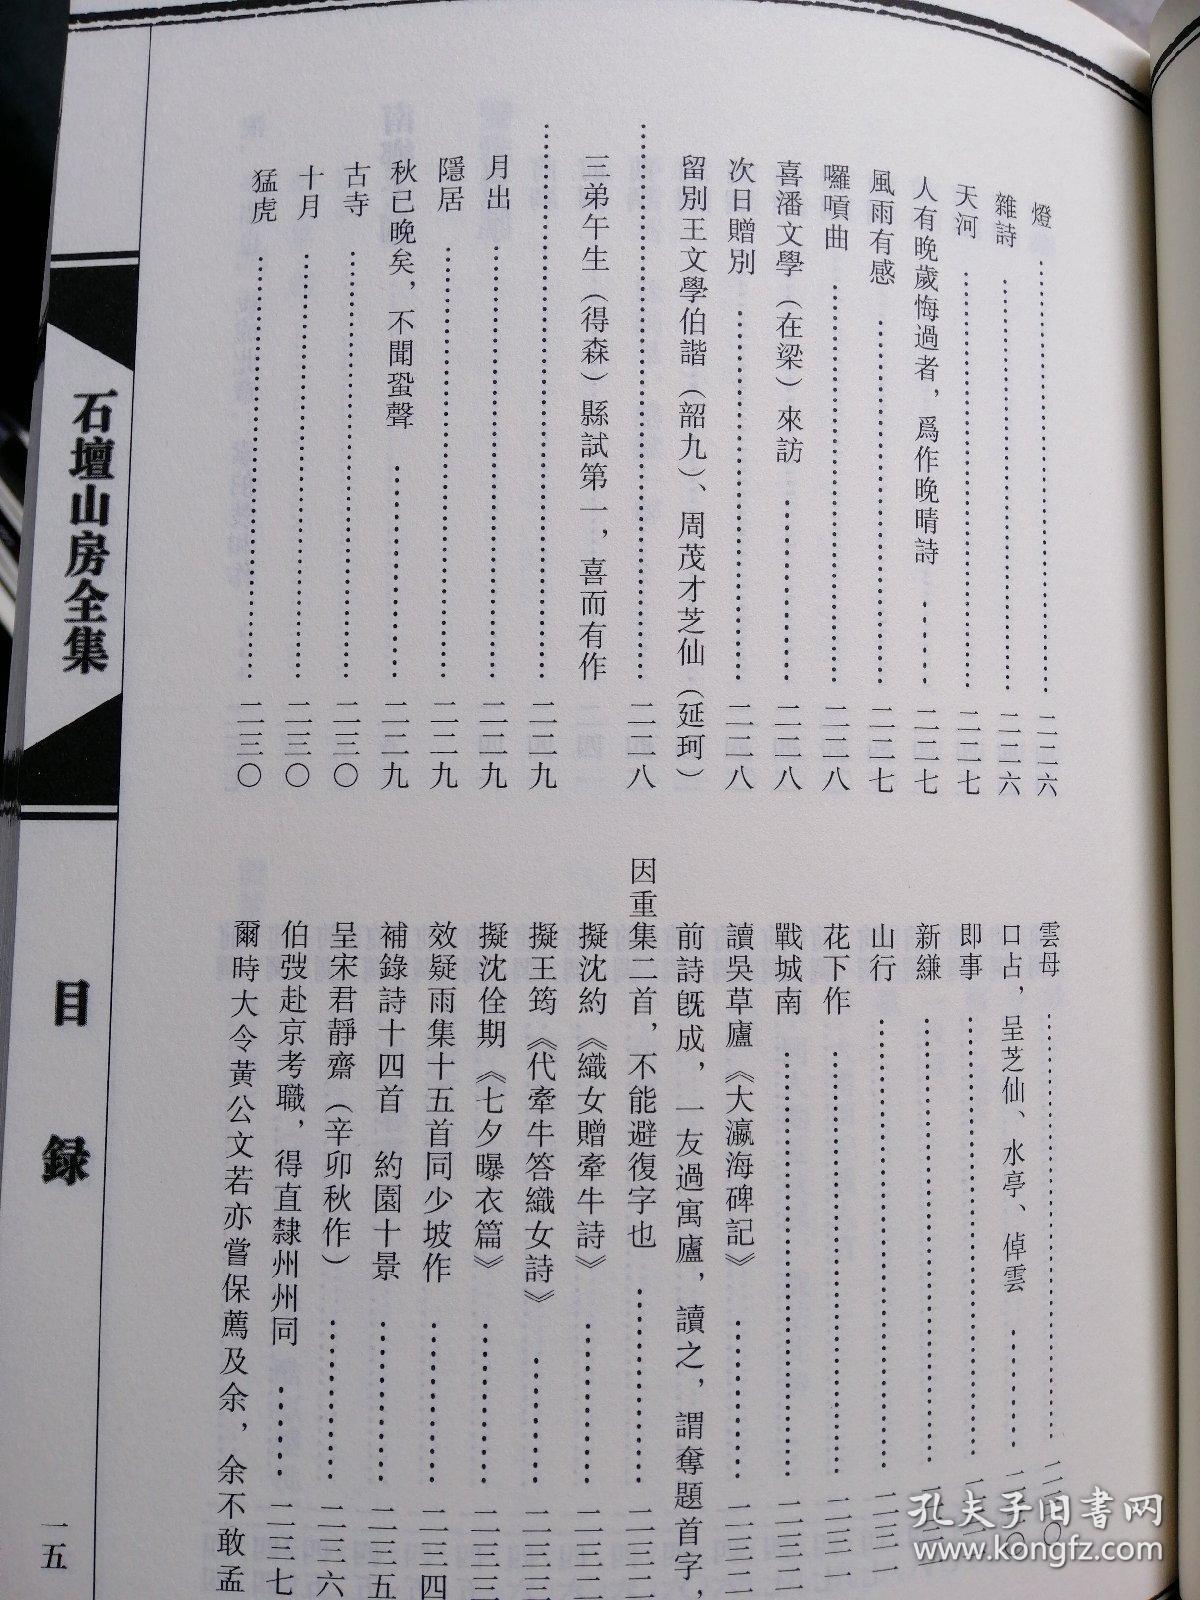 燈……二二六
雜詩……二二六
天河……二二七
人有晚歲悔過者，爲作晚晴詩……二二七
風雨有感……二二七
囉嗊曲……二二八
喜潘文學（在梁）來訪……二二八
次日贈別……二二八
留別王文學伯諧（韶九）、周茂才芝仙（延珂）
……二二八
三弟午生（得森）縣試第一，喜而有作
……二二九
月出……二二九
隱居……二二九
秋已晚矣，不聞蛩聲……二二九
古寺……二三〇
十月……二三〇
猛虎……二三〇
雲母……
口占，呈芝仙、水亭、倬雲……
即事……
新縑……
山行……二三一
花下作……二三一
戰城南……二三二
讀吳草廬《大瀛海碑記》……二三二
前詩既成，一友過寓廬，讀之，謂奪題首字，
因重集二首，不能避復字也……二三二
擬沈約《織女贈牽牛詩》……二三二
擬王筠《代牽牛答織女詩》……二三三
擬沈佺期《七夕曝衣篇》……二三三
效疑雨集十五首同少坡作……二三四
補錄詩十四首 約園十景……二三五
呈宋君靜齋（辛卯秋作）……二三六
伯弢赴京考職，得直隸州州同……二三七
爾時大令黃公文若亦嘗保薦及余，余不敢孟
石壇山房全集
目録
一五
孔夫子旧书网
www.kongfz.com